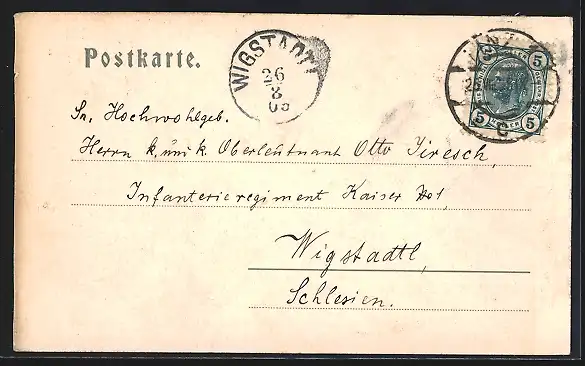 Postkarte.
WIGSTADTL
26
8
05
5 5
5 5
Sr. Hochwohlgeb.
Herrn k. und k. Oberleutnant Otto Jiresch,
Infanterieregiment Kaiser No 1,
Wigstadtl,
Schlesien.